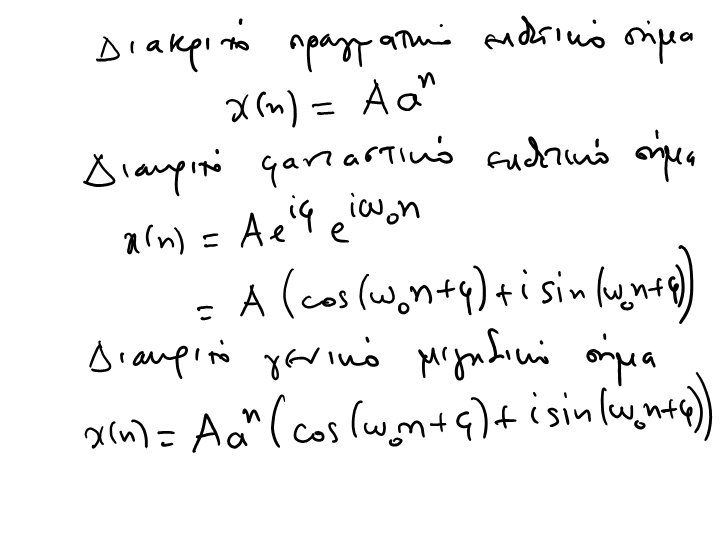 Διακριτό πραγματικό εκθετικό σήμα
x(n) = A aⁿ
Διακριτό φανταστικό εκθετικό σήμα
x(n) = A e^{iφ} e^{iω₀n}
= A (cos(ω₀n+φ)+i sin(ω₀n+φ))
Διακριτό γενικό μιγαδικό σήμα
x(n) = A aⁿ (cos(ω₀n+φ)+ i sin(ω₀n+φ))